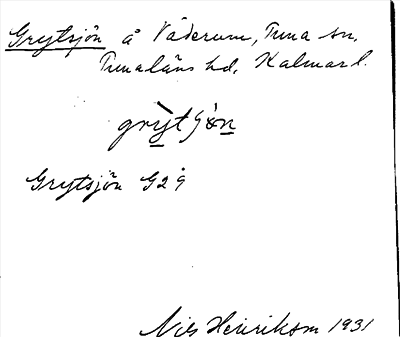 Grytsjön å Väderum, Tuna sn.
Tunaläns hd, Kalmar l.
grỳtʃön
Grytsjön G29
Nils Henrikson 1931